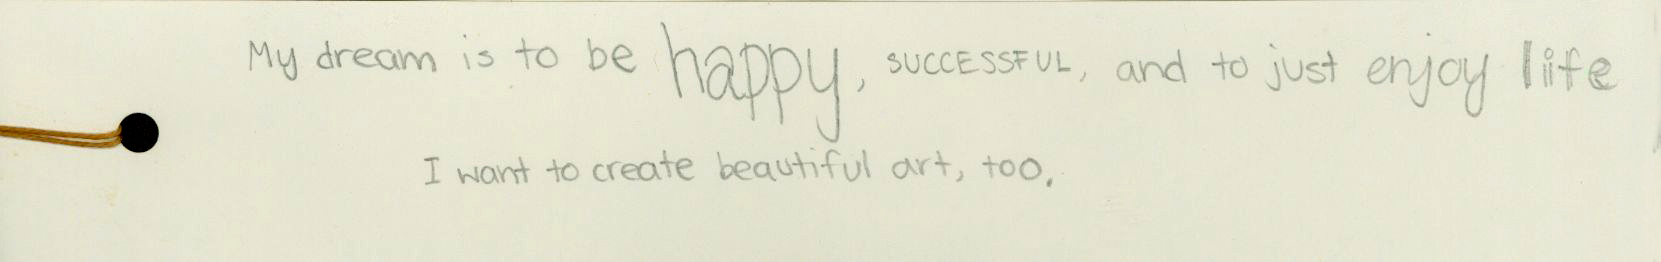 My dream is to be happy, SUCCESSFUL, and to just enjoy life
I want to create beautiful art, too.